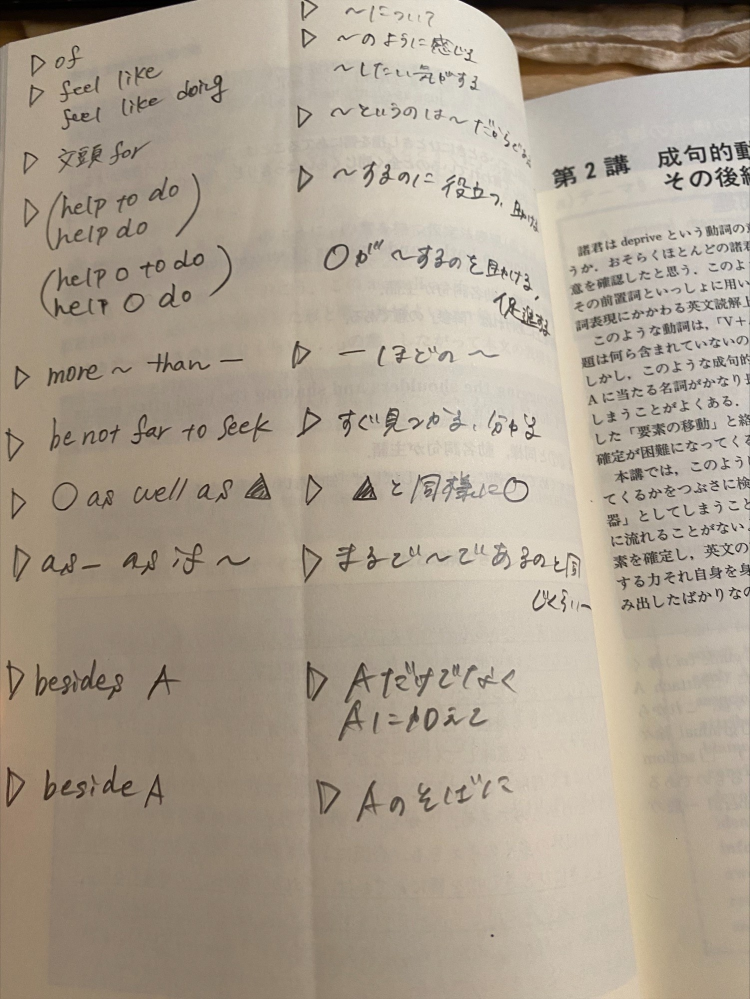 ▷ of
▷ feel like
feel like doing
▷ 文頭 for
▷ (help to do
help do)
(help O to do
help O do)
▷ more ~ than ー
▷ be not far to seek
▷ ○ as well as △
▷ as ー as if ~
▷ besides A
▷ beside A
▷ ~について
▷ ~のように感じる
~したい気がする
▷ ~というのは~だからである
▷ ~するのに役立つ、助ける
Oが~するのを助ける、
促進する
▷ ーほどの~
▷ すぐ見つかる、分かる
▷ △と同様に○
▷ まるで~であるのと同
じくらいー
▷ Aだけでなく
Aに加えて
▷ Aのそばに
第2講 成句的動
その後続
諸君は deprive という動詞の意
うか．おそらくほとんどの諸君
意を確認したと思う．このよう
その前置詞といっしょに用い
詞表現にかかわる英文読解上
このような動詞は，「V+
題は何ら含まれていないの
しかし，このような成句的
Aに当たる名詞がかなり長
しまうことがよくある．
した「要素の移動」と絡
確定が困難になってくる
本講では，このように
てくるかをつぶさに検
器」としてしまうこと
に流れることがない
素を確定し，英文の
する力それ自身を身
み出したばかりなの